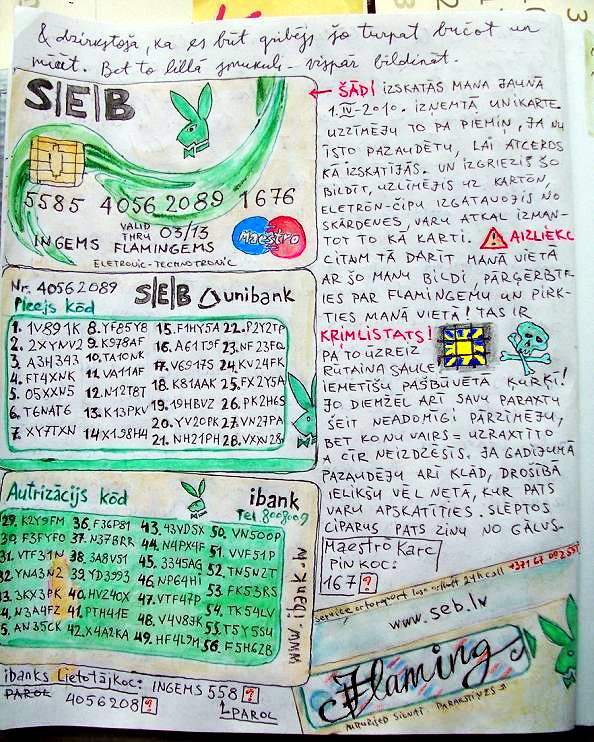 & dzirkstošā, ka es būt gribējs šo turpat bučot un
mīzt. Bet to lillā smukuli - vispār bildināt.
S|E|B
5585 4056 2089 1676
VALID THRU 03/13
INGEMS FLAMINGEMS
Maestro
ELETRONIC-TECHNOTRONIC
← ŠĀDI IZSKATĀS MANA JAUNĀ
1.IV-2010. IZŅEMTĀ UNIKARTE.
UZZĪMĒJU TO PA PIEMIŅ, JA NU
ĪSTO PAZAUDĒTU, LAI ATCEROS
KĀ IZSKATĪJĀS. UN IZGRIEZIS ŠO
BILDĪT, UZLĪMĒJIS UZ KARTŌN,
ELETRŌN-ČIPU IZGATAVOJIS NO
SKĀRDENES, VARU ATKAL IZMAN-
TOT TO KĀ KARTI. AIZLIEKC
CITAM TĀ DARĪT MANĀ VIETĀ
AR ŠO MANU BILDI, PĀRĢĒRBT-
IES PAR FLAMINGEMU UN PIRK-
TIES MANĀ VIETĀ! TAS IR
KRIMLISTATS!
PA TO UZREIZ
RŪTAINĀ SAULĒ
IEMETĪŠU PAŠBŪVĒTĀ ĶURĶĪ!
JO DIEMŽĒL ARĪ SAVU PARAXTU
ŠEIT NEADOMĪGI PĀRZĪMĒJU,
BET KO NU VAIRS = UZRAXTĪTO
A CĪR NEIZDZĒSĪS. JA GADĪJUMĀ
PAZAUDĒJU ARĪ KLĀD, DROŠĪBĀ
IELIKŠU VĒL NETĀ, KUR PATS
VARU APSKATĪTIES. SLĒPTOS
CIPARUS PATS ZIŅU NO GALVUS.
Nr. 40562089 S|E|B unibank
Pleejs kōd
1. 1V891K 8. YF85Y8 15. F1HY5A 22. P2Y2TP
2. 2XYNV2 9. K978AF 16. A61T9F 23. NF23FQ
3. A3H343 10. TA10NK 17. V69175 24. KV24FK
4. FT4XNK 11. VA11AF 18. K81AAK 25. FX25YA
5. 05XXN5 12. N12T8T 19. 19HBVZ 26. PK2H6S
6. T6NAT6 13. K13PKV 20. YV20PK 27. VN27PA
7. XY7TXN 14. X198H4 21. NH21PH 28. VXXN28
Autrizācijs kōd ibank
Tel 8008009
29. K2Y9FM 36. F36P81 43. 43VDSX 50. VN50OP
30. F3FYFO 37. N37BRR 44. N4PX4F 51. VVF51P
31. VTF31N 38. 3A8V51 45. 3345AG 52. TN5N2T
32. YNA3N2 39. YD3993 46. NP64HI 53. FK53RS
33. 3KX3PK 40. HV240X 47. VTF47P 54. TK54LV
34. N3A4FZ 41. PTH41E 48. V4V8JK 55. T5Y5SU
35. AN35CK 42. X4A2KA 49. HF4L9M 56. F5H6ZB
www.ibank.lv
Maestrō Karc
PIN KOC:
167?
service 24h call +371 67 092 555
www.seb.lv
Flaming
PARAKSTĪZES
ibanks Lietotājkoc: INGEMS 558 ?
PAROL 4056208 ? PAROL